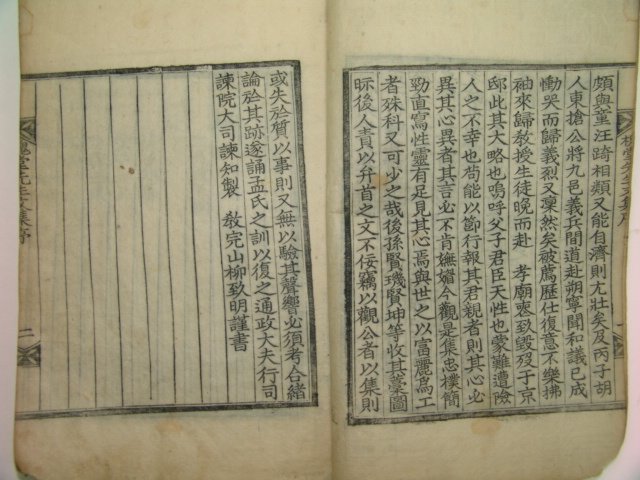 頗與董汪踦相類又能自濟則尤壯矣及丙子胡
人東搶公將九邑義兵間道赴朔寧聞和議已成
慟哭而歸義烈又凜然矣被薦歷仕復意不樂拂
袖來歸敎授生徒晚而赴 孝廟喪致毀歿于京
邸此其大略也嗚呼父子君臣天性也蒙難遭險
人之不幸也苟能以節行報其君親者則其心必
異其心異者其言必不肯媕婀今觀是集忠樸簡
勁直寫性靈有足見其心焉與世之以富麗爲工
者殊科又可少之哉後孫賢璣賢坤等收其藁圖
眎後人責以弁首之文不佞竊以觀公者以集則
或失於質以事則又無以驗其聲響必須考合緖
論於其跡遂誦孟氏之訓以復之通政大夫行司
諫院大司諫知製 敎完山柳致明謹書
先生文集序
二